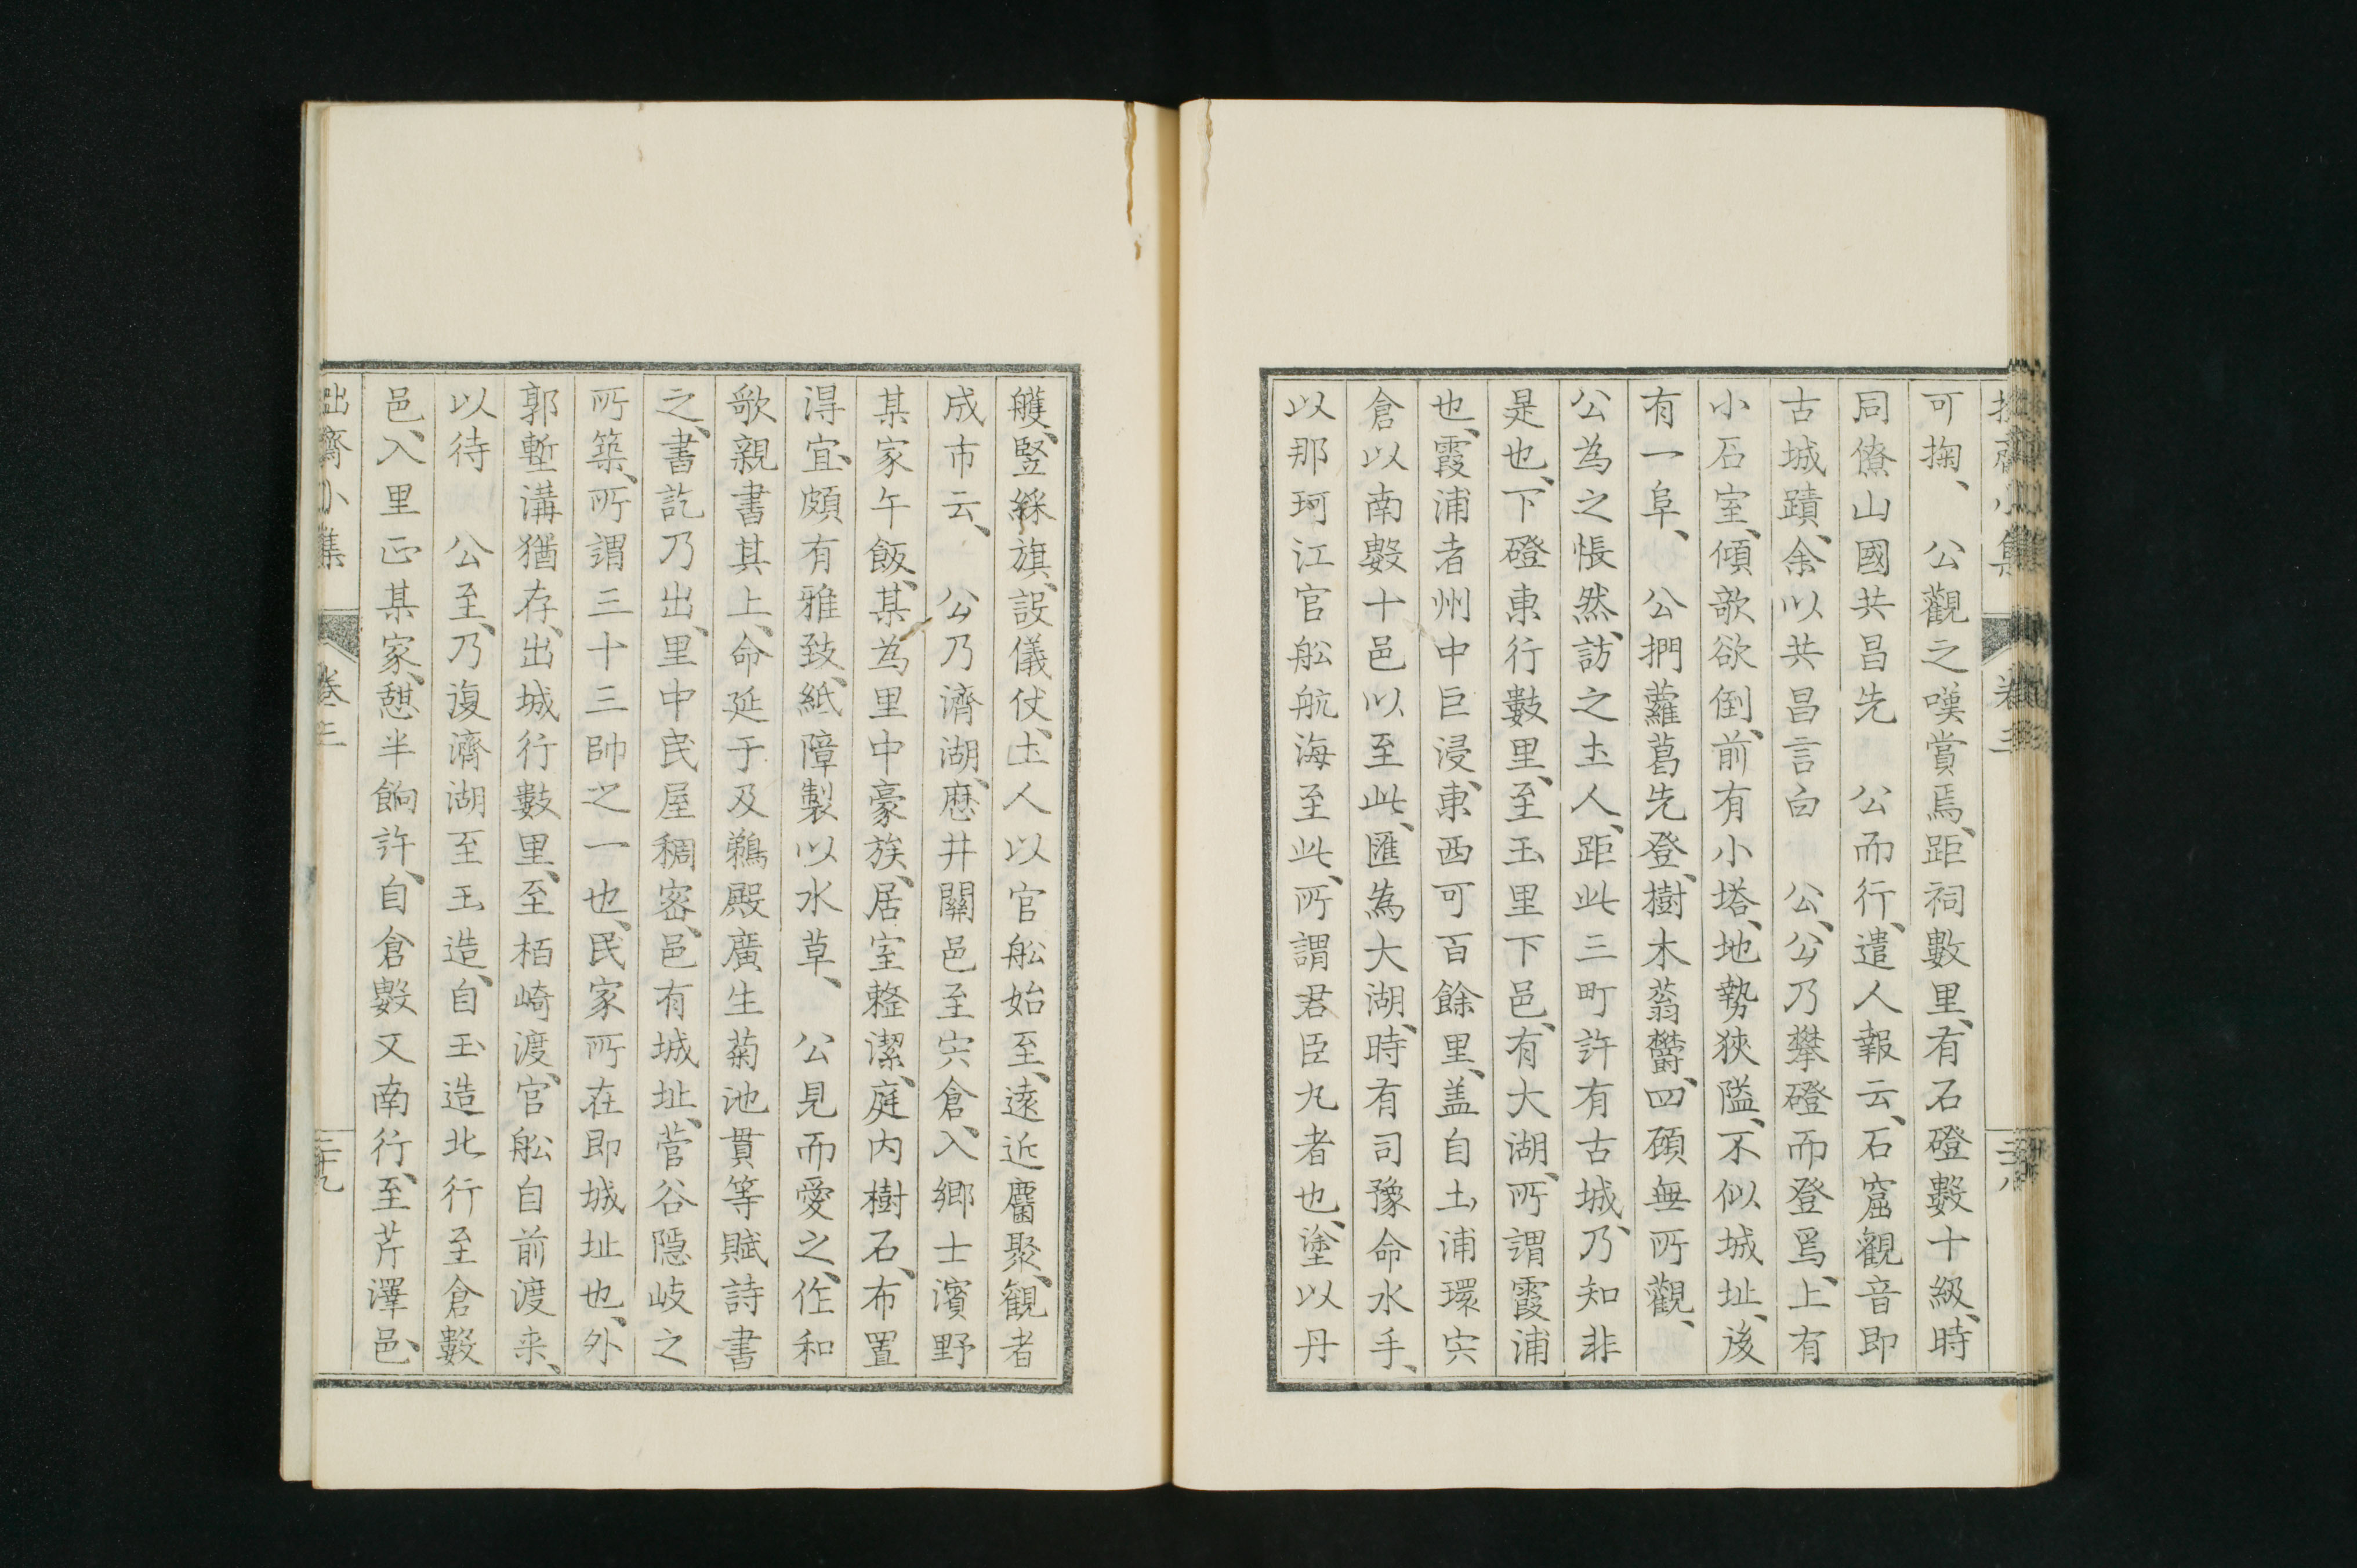 拙齋小集 卷三 三十八
可掬、　公觀之嘆賞焉、距祠數里、有石磴數十級、時
同僚山國共昌先　公而行、遣人報云、石窟観音即
古城蹟、余以共昌言白　公、公乃攀磴而登焉、上有
小石室、傾欹欲倒、前有小塔、地勢狹隘、不似城址、後
有一阜、　公捫蘿葛先登、樹木蓊欝、四顧無所觀、
公為之悵然、訪之土人、距此三町許有古城、乃知非
是也、下磴東行數里、至玉里下邑、有大湖、所謂霞浦
也、霞浦者州中巨浸、東西可百餘里、盖自土浦環宍
倉以南數十邑以至此、匯為大湖、時有司豫命水手、
以那珂江官舩航海至此、所謂君臣丸者也、塗以丹
艧、竪綵旗、設儀仗、土人以官舩始至、遠近麕聚、観者
成市云、　公乃濟湖、歴井關邑至宍倉、入郷士濱野
某家午飯、某為里中豪族、居室整潔、庭内樹石、布置
得宜、頗有雅致、紙障製以水草、　公見而愛之、作和
歌親書其上、命延于及鵜殿廣生菊池貫等賦詩書
之、書訖乃出、里中民屋稠密、邑有城址、菅谷隠岐之
所築、所謂三十三帥之一也、民家所在即城址也、外
郭塹溝猶存、出城行數里、至栢崎渡、官舩自前渡来、
以待　公至、乃復濟湖至玉造、自玉造北行至倉數
邑、入里正某家、憩半餉許、自倉數又南行、至芹澤邑、
拙齋小集 卷三 三十九